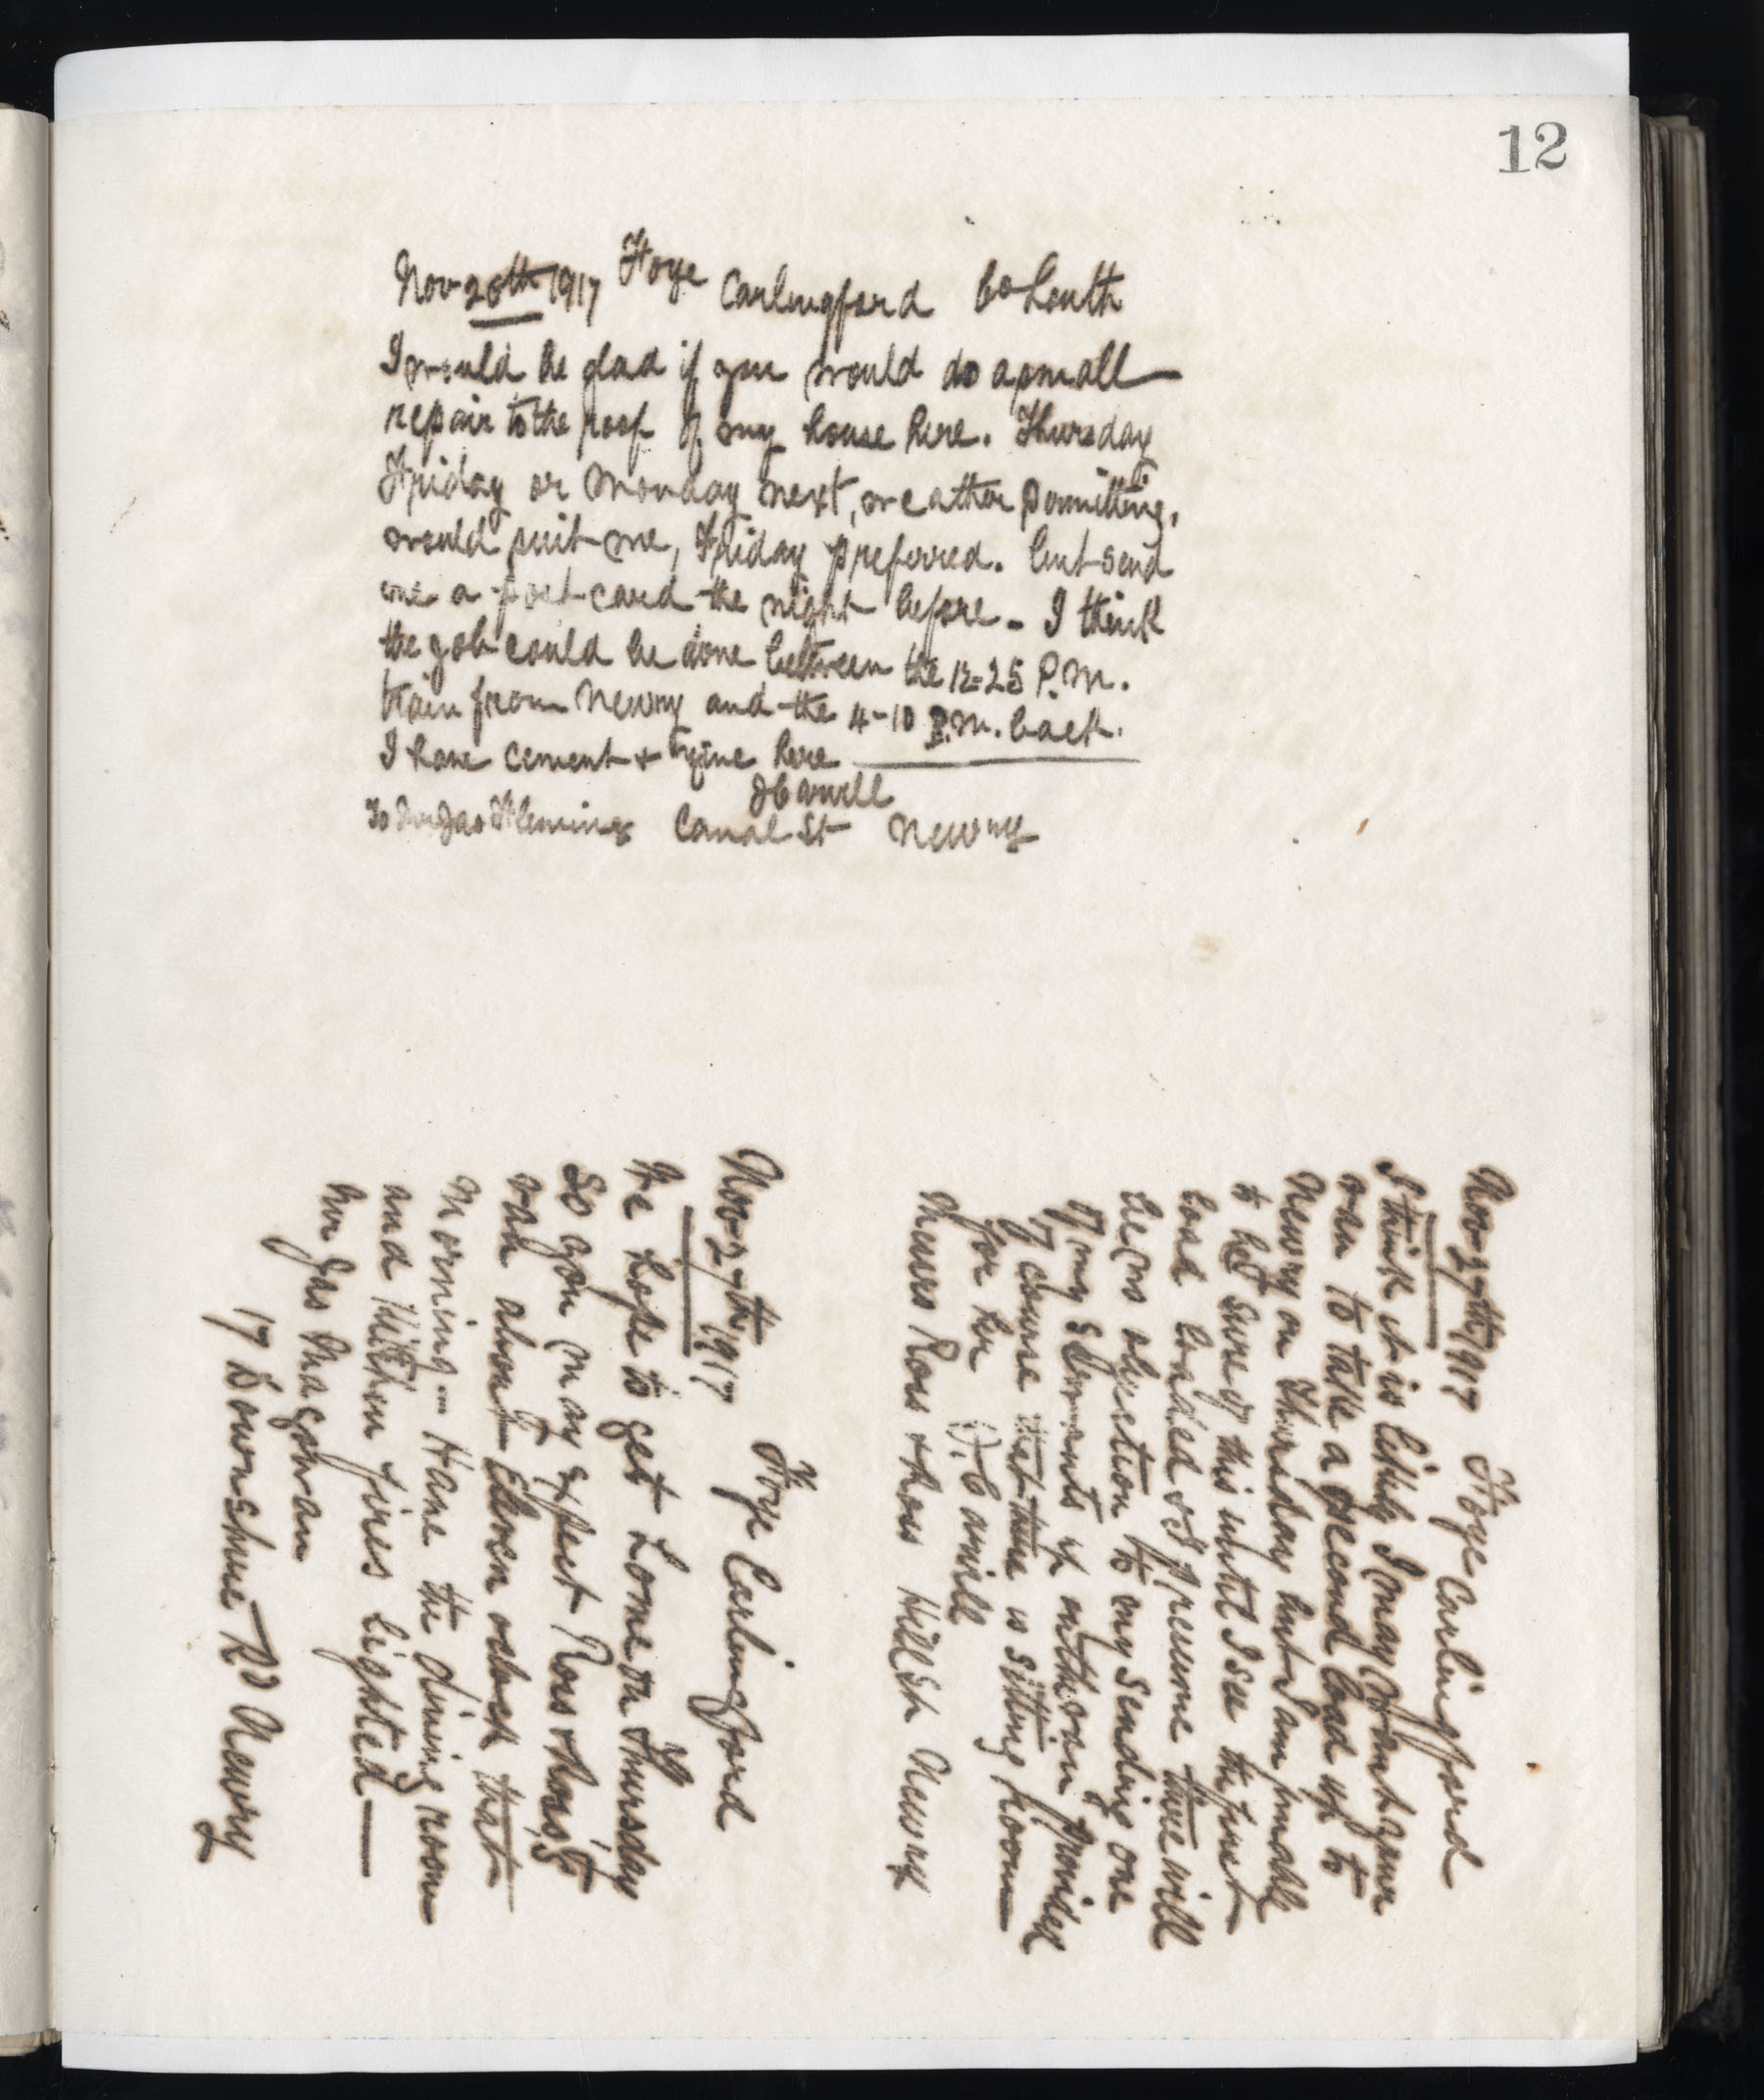 12
Nov 20th 1917 Foye Carlingford Co Louth
I would be glad if you would do a small
repair to the roof of my house here. Thursday
Friday or Monday next, weather permitting,
would suit me, Friday preferred. but send
me a post card the night before - I think
the job could be done between the 12-25 P.M.
train from Newry and the 4-10 P.M. back.
I have cement & here
JCarvill
To Mr Jas Fleming Canal St Newry
Nov 27th 1917 Foye Carlingford
I think it is likely I may want your
van to take a second load up to
Newry on Thursday but I am unable
to be sure of this until I see the first
load loaded & I presume there will
be no objection to my sending one
of my servants up with van provided
of course that there is sitting room
for her J. Carvill
Messrs Ross & Ross Hill St Newry
Nov 27th 1917 Foye Carlingford
We hope to get home on Thursday
So you may expect Ross & Ross's
van about Eleven oclock that
Morning - Have the dining room
and Kitchen fires lighted
Mrs Jas Magowan
17 Downshire Rd Newry